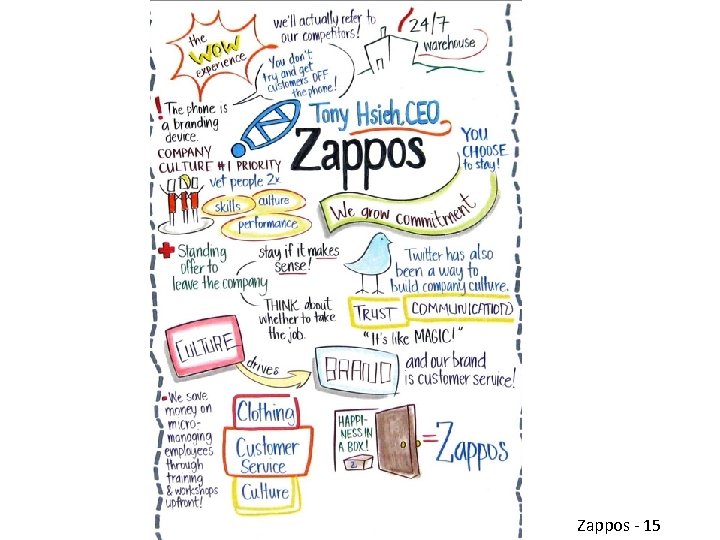 the
WOW
experience
we'll actually refer to
our competitors!
You don't
try and get
customers OFF
the phone!
24/7
warehouse
! The phone is
a branding
device.
Tony Hsieh, CEO
Zappos
YOU
CHOOSE
to stay!
COMPANY
CULTURE #1 PRIORITY
vet people 2x
skills
culture
performance
We grow commitment
Standing
offer to
leave the company
stay if it makes
sense!
THINK about
whether to take
the job.
Twitter has also
been a way to
build company culture.
TRUST
COMMUNICATION
"It's like MAGIC!"
CULTURE
drives
BRAND
and our brand
is customer service!
We save
money on
micro-
managing
employees
through
training
& workshops
upfront!
Clothing
Customer
Service
Culture
HAPPI-
NESS IN
A BOX!
= Zappos
Zappos - 15